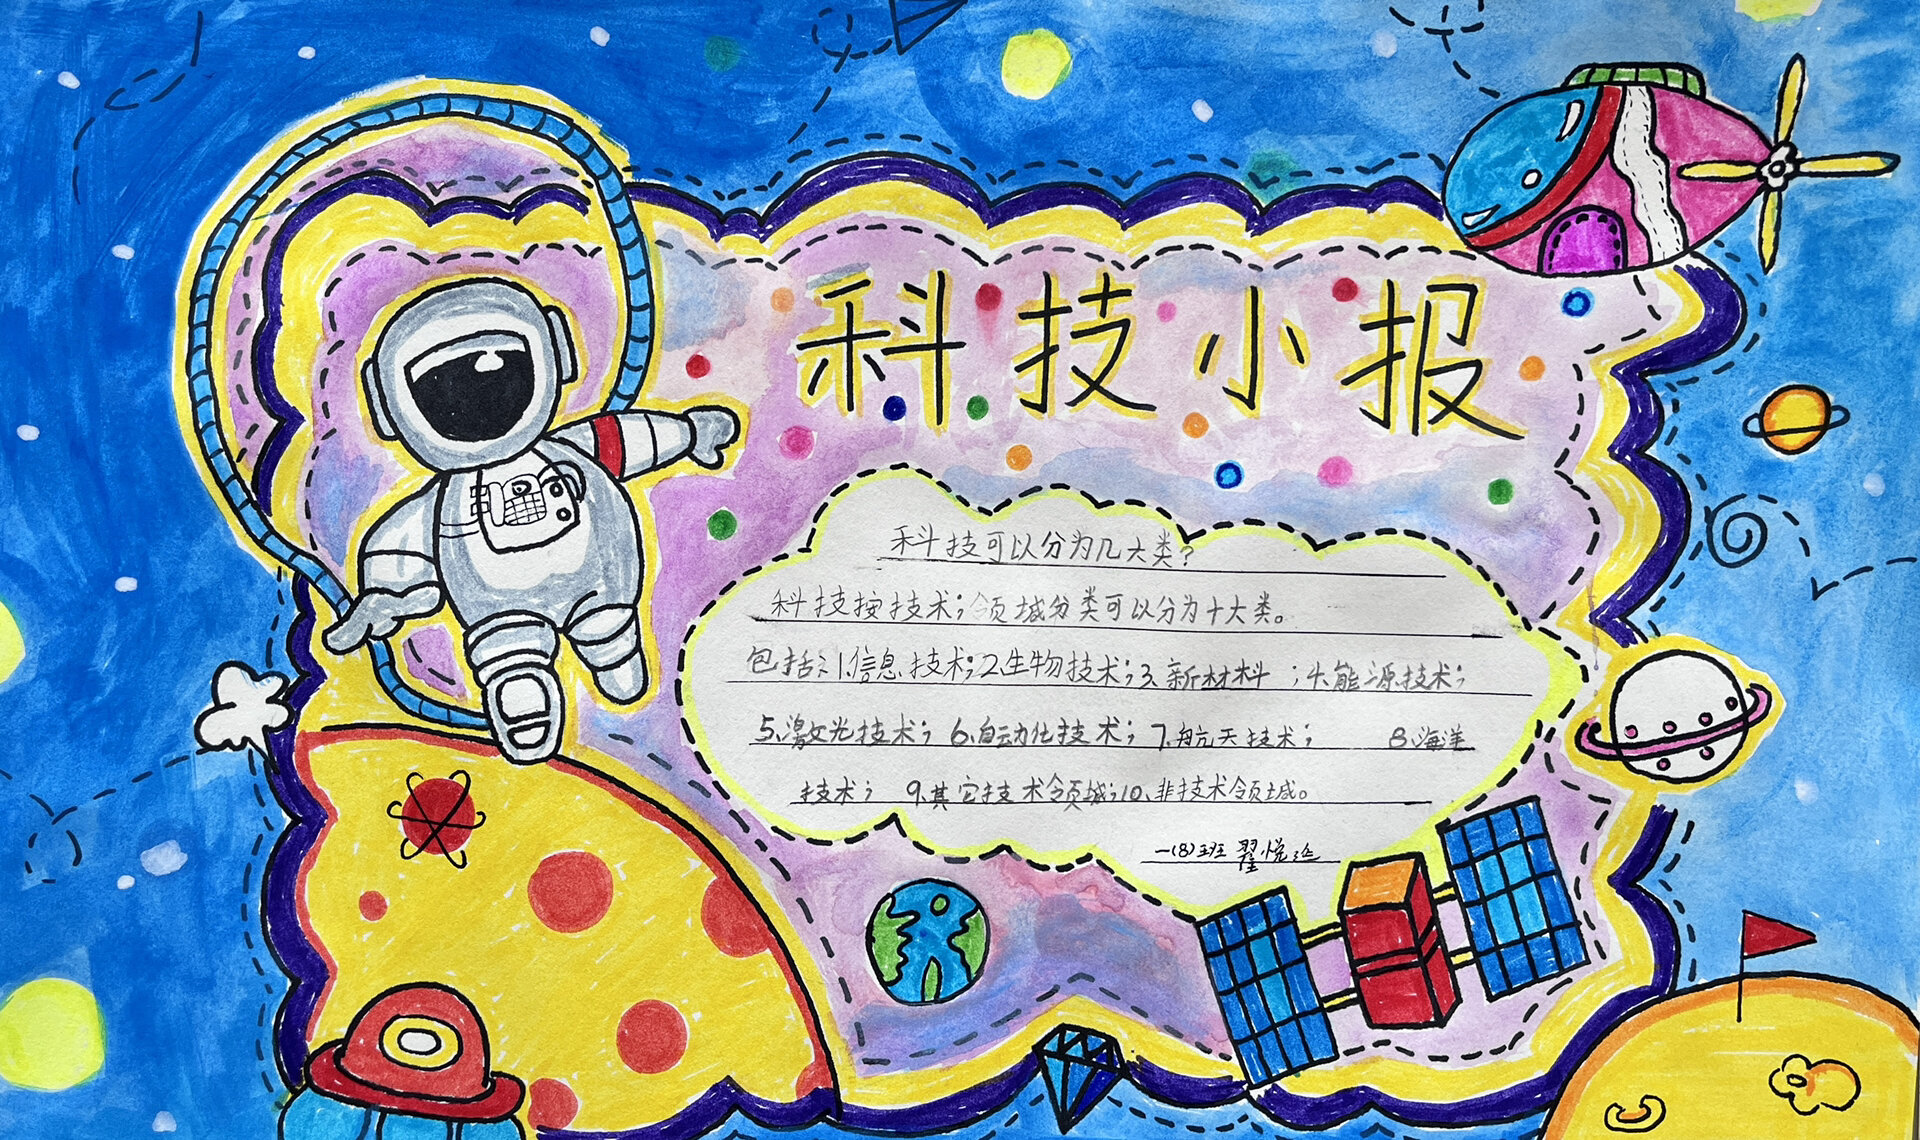 科技小报
科技可以分为几大类?
科技按技术;领域分类可以分为十大类。
包括:1.信息技术;2.生物技术;3.新材料;4.能源技术;
5.激光技术;6.自动化技术;7.航天技术;8.海洋
技术;9.其它技术领域;10.非技术领域。
一(8)班 翟悦